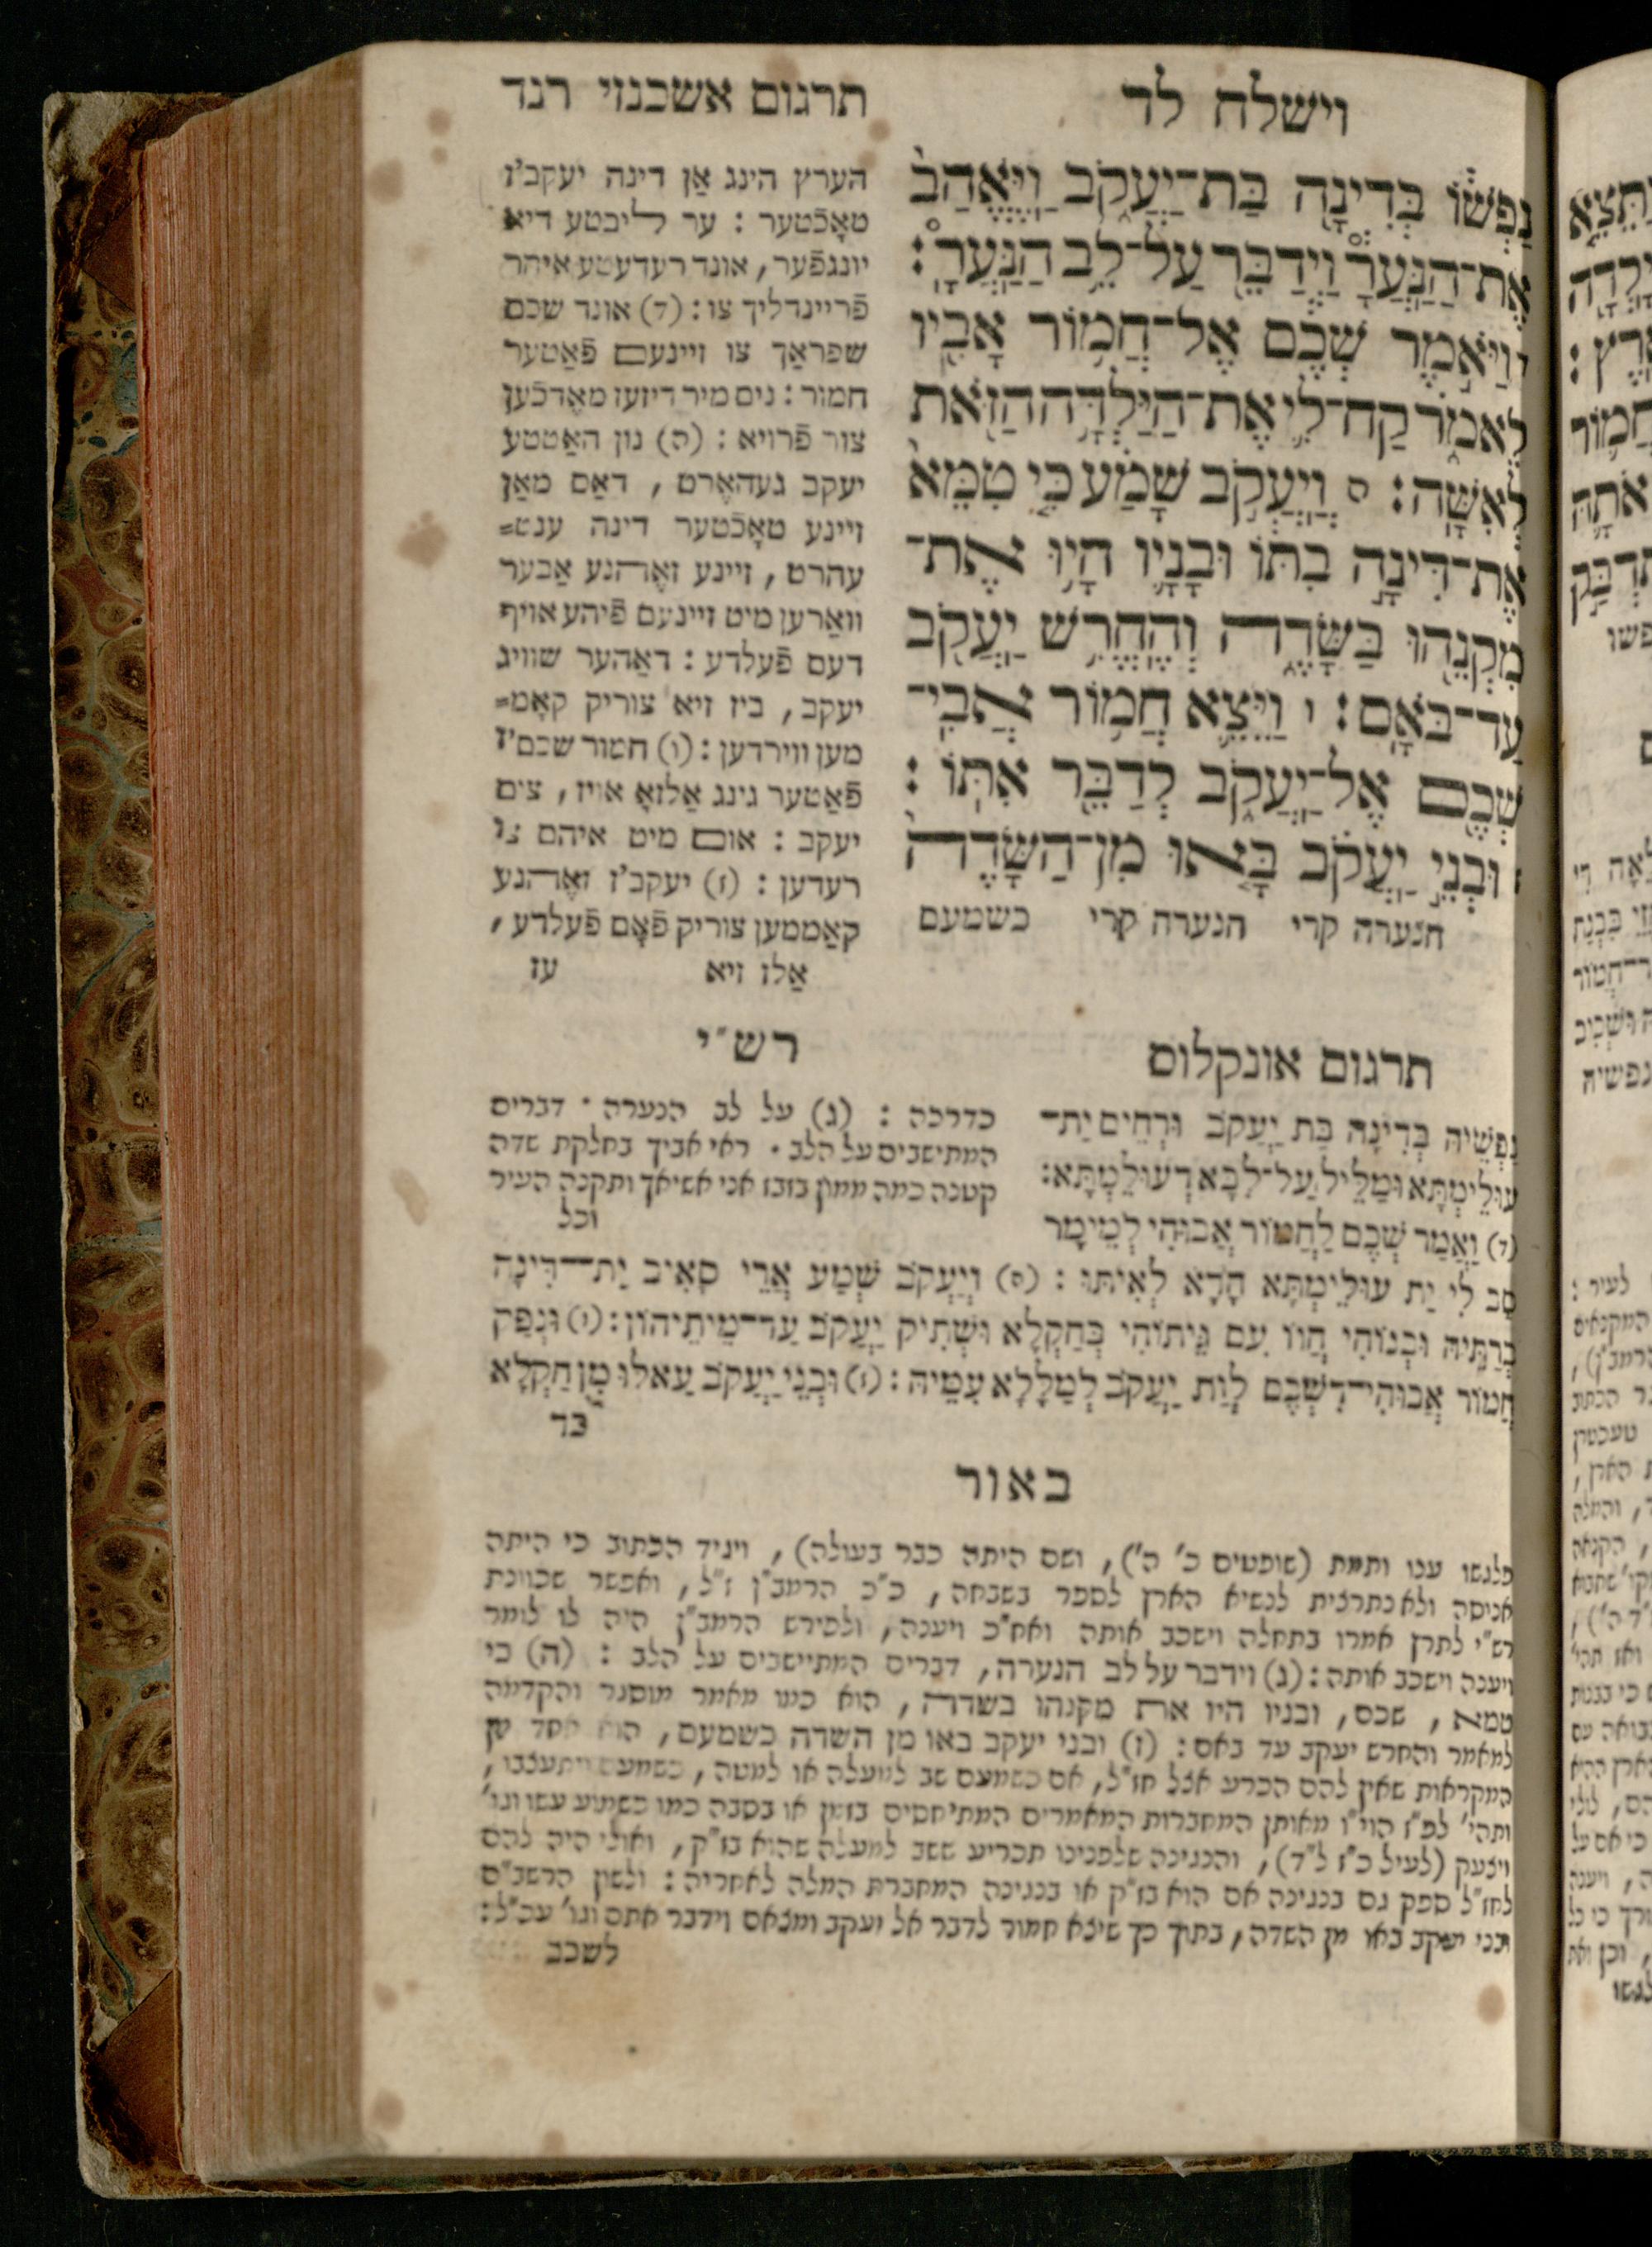 וישלח לד
תרגום אשכנזי רנד
נַפְשׁוֹ בְּדִינָה בַּת־יַעֲקֹב וַיֶּאֱהַב
אֶת־הַנַּעֲרָ וַיְדַבֵּר עַל־לֵב הַנַּעֲרָ׃
וַיֹּאמֶר שְׁכֶם אֶל־חֲמוֹר אָבִיו
לֵאמֹר קַח־לִי אֶת־הַיַּלְדָּה הַזֹּאת
לְאִשָּׁה׃ ה וְיַעֲקֹב שָׁמַע כִּי טִמֵּא
אֶת־דִּינָה בִתּוֹ וּבָנָיו הָיוּ אֶת־
מִקְנֵהוּ בַּשָּׂדֶה וְהֶחֱרִשׁ יַעֲקֹב
עַד־בֹּאָם׃ ו וַיֵּצֵא חֲמוֹר אֲבִי־
שְׁכֶם אֶל־יַעֲקֹב לְדַבֵּר אִתּוֹ׃
וּבְנֵי יַעֲקֹב בָּאוּ מִן־הַשָּׂדֶה
הנערה קרי הנערה קרי כשמעם
הערץ הינג אַן דינה יעקב'ז
טאָכֿטער : ער ליבטע דיא
יונגפֿער, אונד רעדעטע איהר
פֿריינדליך צו : (ד) אונד שכם
שפראַך צו זיינעם פֿאַטער
חמור : נים מיר דיזעז מאֶדכֿען
צור פֿרויא : (ה) נון האַטטע
יעקב געהאֶרט, דאַס מאַן
זיינע טאָכֿטער דינה ענט=
עהרט, זיינע זאֶהנע אַבער
וואַרען מיט זיינעם פֿיהע אויף
דעם פֿעלדע : דאַהער שוויג
יעקב, ביז זיא צוריק קאָמ=
מען ווירדען : (ו) חמור שכם'ז
פֿאַטער גינג אַלזאָ אויז, צים
יעקב : אום מיט איהם צו
רעדען : (ז) יעקב'ז זאֶהנע
קאַממען צוריק פֿאָם פֿעלדע,
אַלז זיא עז
תרגום אונקלוס
נַפְשֵׁיהּ בְּדִינָה בַּת יַעֲקֹב וּרְחֵים יַת־
עוּלֵימְתָּא וּמַלֵּיל עַל־לִבָּא דְעוּלֵמְתָּא׃
(ד) וַאֲמַר שְׁכֶם לַחֲמוֹר אֲבוּהִי לְמֵימָר
סַב לִי יַת עוּלֵימְתָּא הָדָא לְאִיתּוּ׃ (ה) וְיַעֲקֹב שְׁמַע אֲרֵי סָאִיב יַת־דִּינָה
בְרַתֵּיהּ וּבְנוֹהִי הֲווֹ עִם גֵּיתוֹהִי בְּחַקְלָא וּשְׁתִיק יַעֲקֹב עַד־מֵיתֵיהוֹן׃ (ו) וּנְפַק
חֲמוֹר אֲבוּהִי־דִשְׁכֶם לְוַת יַעֲקֹב לְמַלָּלָא עִמֵּיהּ׃ (ז) וּבְנֵי יַעֲקֹב עַאלוּ מִן חַקְלָא
כד
רש״י
כדרכה : (ג) על לב הנערה · דברים
המתישבים על הלב · ראי אביך בחלקת שדה
קטנה כמה ממון בזבז אני אשיאך ותקנה העיר
וכל
באור
פלגשו ענו ותמת (שופטים כ' ה'), ושם היתה כבר בעולה), ויגיד הכתוב כי היתה
אנוסה ולא נתרצית לנשיא הארץ לספר בשבחה, כ״כ הרמב״ן ז״ל, ואפשר שכוונת
רש״י לתרץ אמרו בתחלה וישכב אותה ואח״כ ויענה, ולפירש הרמב״ן היה לו לומר
ויענה וישכב אותה : (ג) וידבר על לב הנערה, דברים המתיישבים על הלב : (ה) כי
טמא, שכם, ובניו היו את מקנהו בשדה, הוא כמו מאמר מוסגר והקדמה
למאמר והחרש יעקב עד באם : (ז) ובני יעקב באו מן השדה כשמעם, הוא אחד מן
המקראות שאין להם הכרע אצל חז״ל, אם כשמעם שב למעלה או למטה, כשמעם ויתעצבו,
ותהי' לפ״ז הוי״ו מאותן המחברות המאמרים המתיחסים בזמן או בסבה כמו כשמוע עשו וגו'
ויצעק (לעיל כ״ז ל״ד), והנגינה שלפנינו תכריע ששב למעלה שהוא בז״ק, ואולי היה להם
לחז״ל ספק גם בנגינה אם הוא בז״ק או בנגינה המחברת המלה לאחריה : ולשון הרשב״ם
ובני יעקב באו מן השדה, בתוך כך שיצא חמור לדבר אל יעקב ומצאם וידבר אתם וגו' עכ״ל:
לשכב